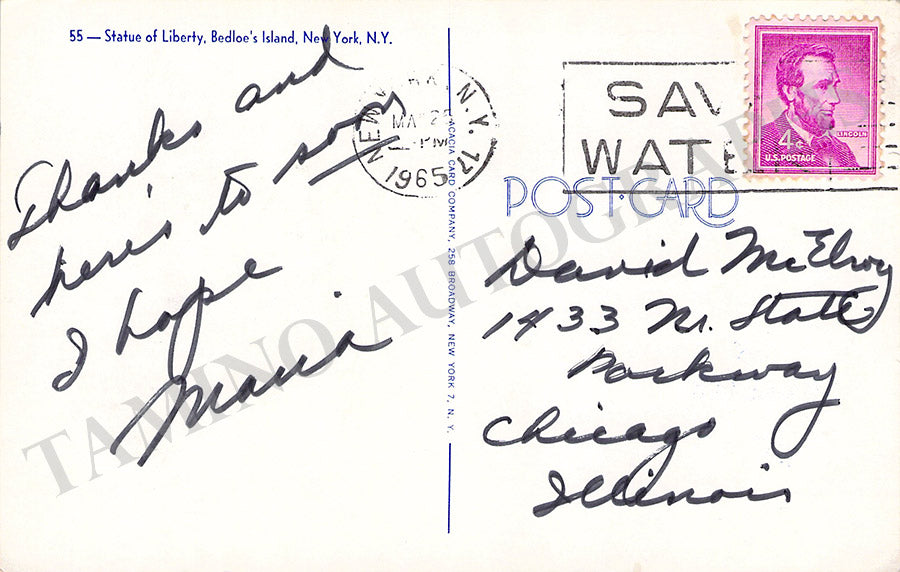 55 — Statue of Liberty, Bedloe's Island, New York, N.Y.
Thanks and
here's to soon
I hope
Maria
NEW YORK, N.Y. 17
MAR 25
PM
1965
SAV
WATE
4¢
LINCOLN
U.S. POSTAGE
POST CARD
ACACIA CARD COMPANY, 258 BROADWAY, NEW YORK 7, N. Y.
David McElroy
1433 N. State
Parkway
Chicago
Illinois
TAMINO AUTOGRAPHS